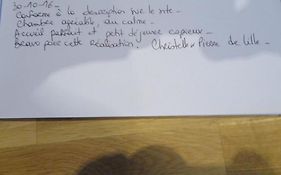 30-10-16-
Conforme à la description sur le site -
Chambre agréable, au calme -
Accueil parfait et petit déjeuner copieux -
Bravo pour cette réalisation! Christelle & Pierre de Lille -